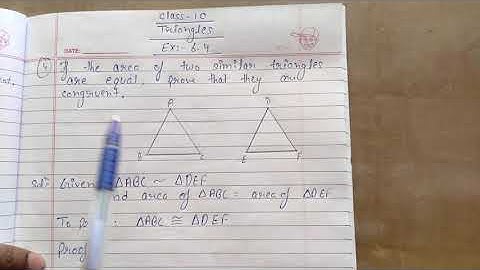 Class-10
Triangles
DATE:
Ex:- 6.4
4) If the area of two similar triangles
are equal, prove that they are
congruent.
A
D
B
C
E
F
Sol: Given: △ABC ~ △DEF
and area of △ABC = area of △DEF
To : △ABC ≅ △DEF